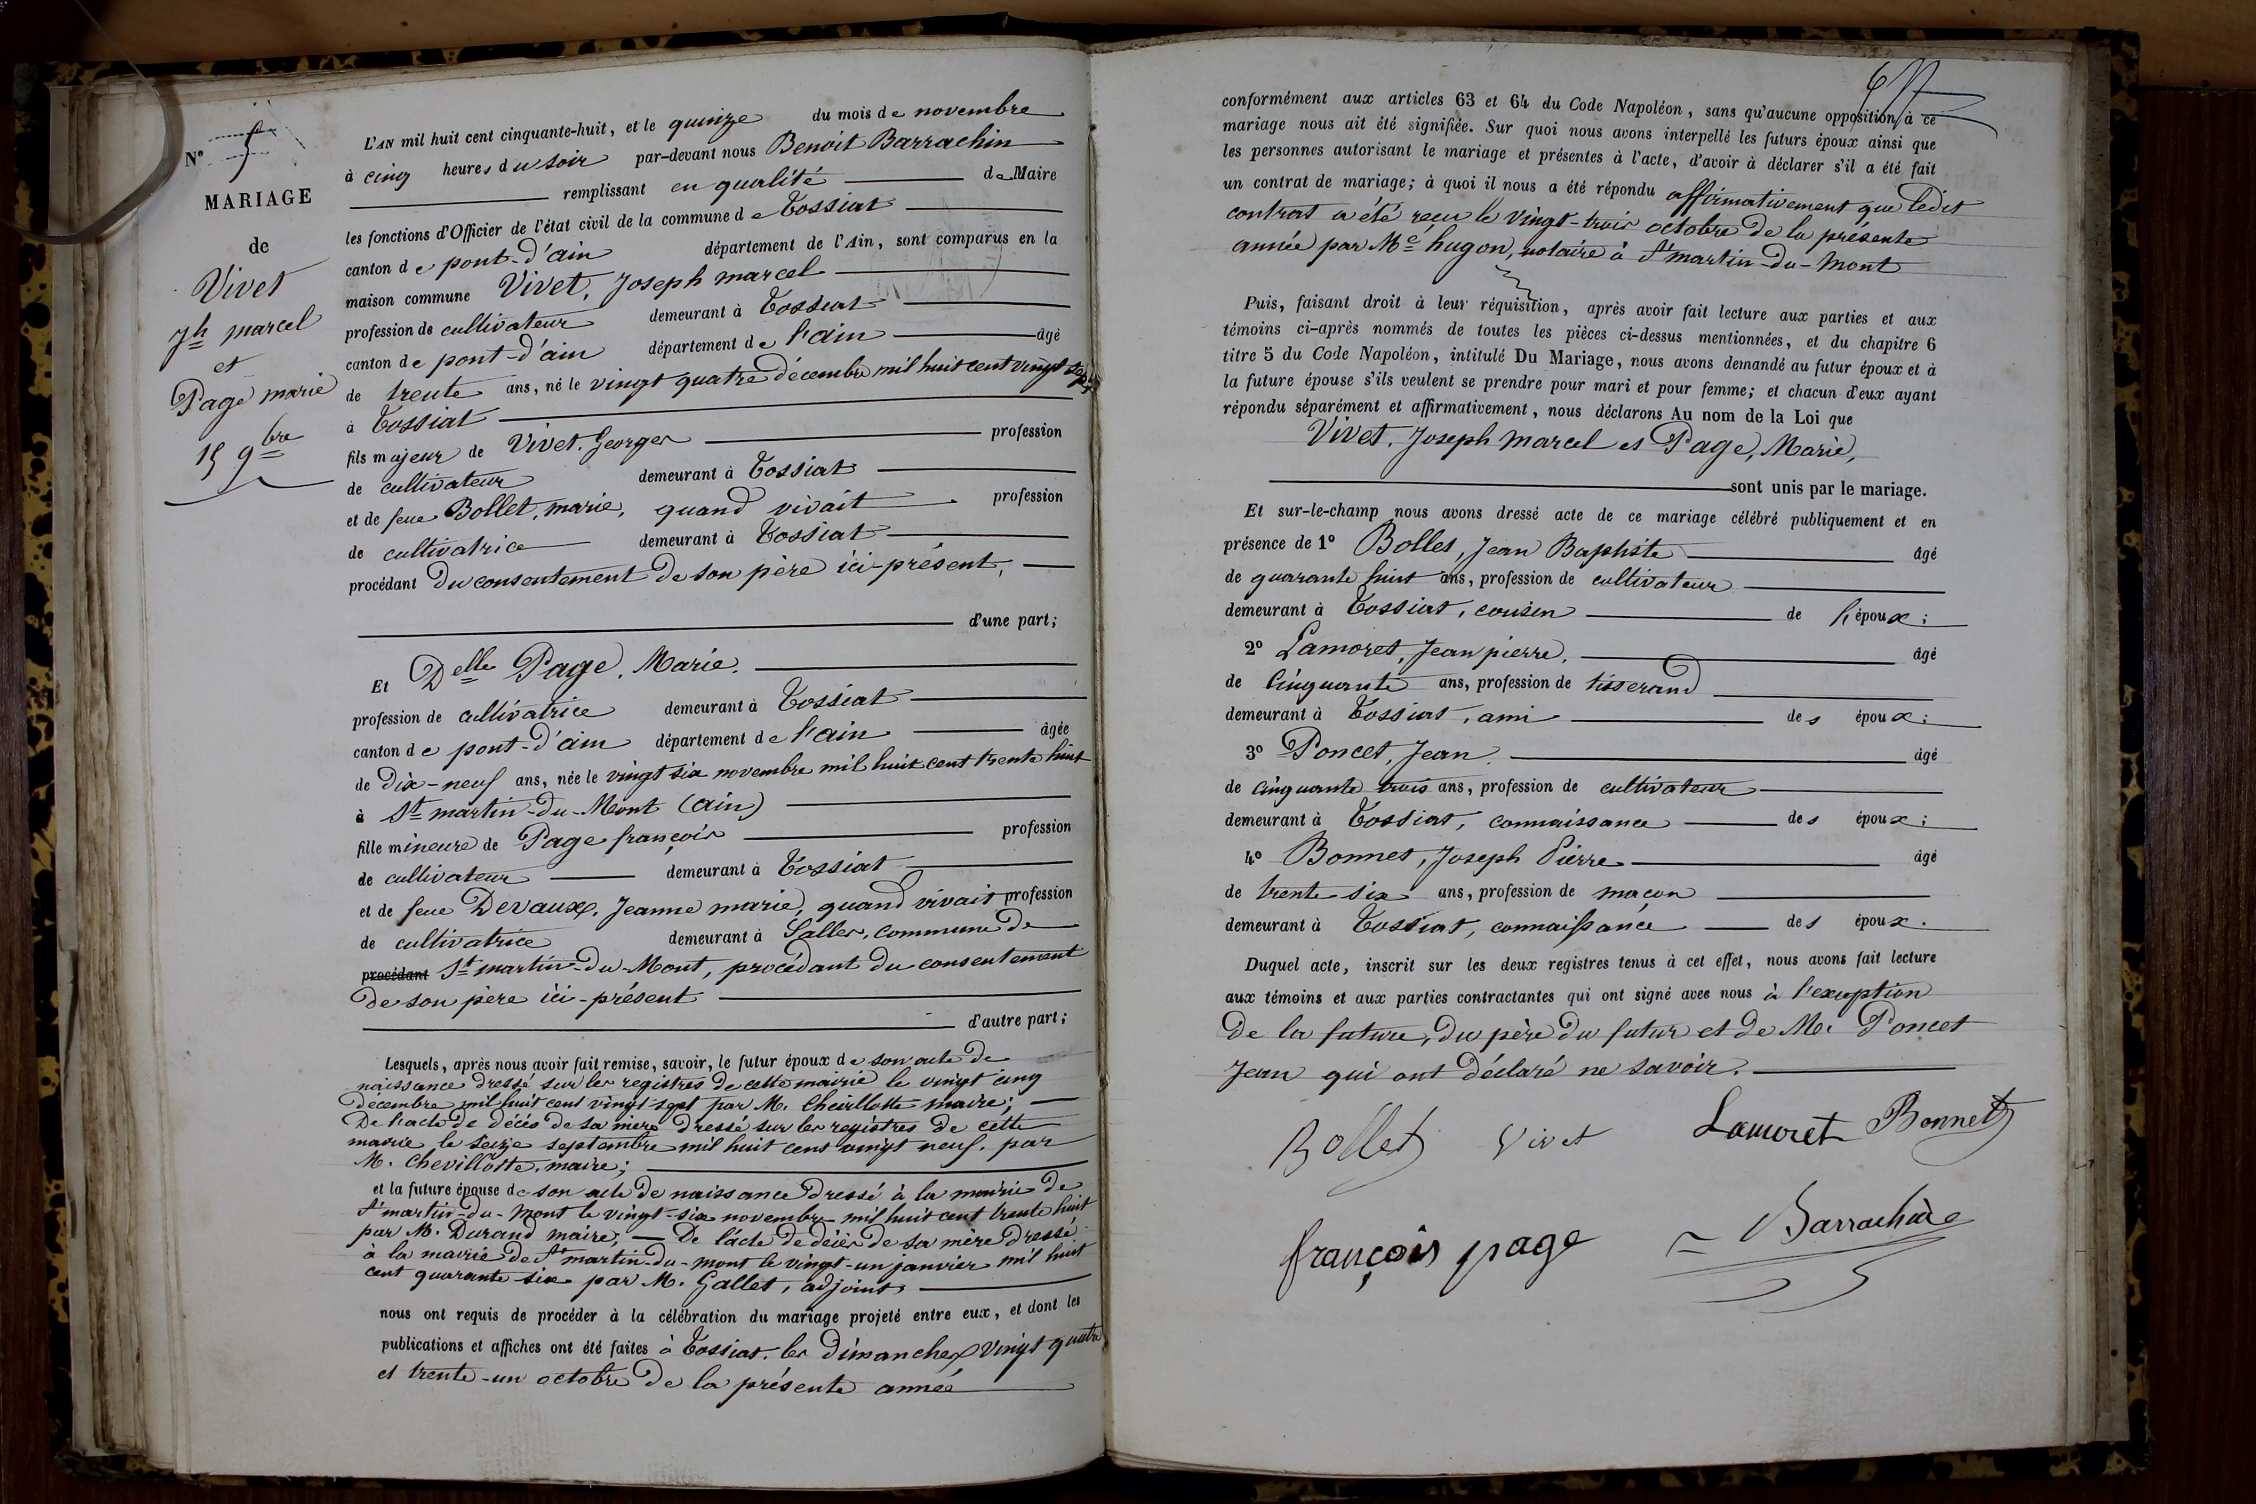 N° 5
MARIAGE
de
Vivet
Jh marcel
et
Page marie
15 9bre
L'AN mil huit cent cinquante-huit, et le quinze du mois de novembre
à cinq heures du soir par-devant nous Benoit Barrachin
remplissant en qualité de Maire
les fonctions d'Officier de l'état civil de la commune de Tossiat
canton de pont-d'ain département de l'Ain, sont comparus en la
maison commune Vivet, Joseph marcel
profession de cultivateur demeurant à Tossiat
canton de pont-d'ain département de l'ain âgé
de trente ans, né le vingt quatre décembre mil huit cent vingt sept
à Tossiat
fils majeur de Vivet. Georges profession
de cultivateur demeurant à Tossiat
et de feue Bollet, marie, quand vivait profession
de cultivatrice demeurant à Tossiat
procédant du consentement de son père ici-présent,
d'une part;
Et Delle Page, Marie.
profession de cultivatrice demeurant à Tossiat
canton de pont-d'ain département de l'ain âgée
de dix-neuf ans, née le vingt six novembre mil huit cent trente huit
à St martin-du-Mont (ain)
fille mineure de Page françois profession
de cultivateur demeurant à Tossiat
et de feue Devaux, Jeanne marie, quand vivait profession
de cultivatrice demeurant à Salles, commune de
procédant St martin-du-Mont, procédant du consentement
de son père ici-présent
d'autre part;
Lesquels, après nous avoir fait remise, savoir, le futur époux de son acte de
naissance dressé sur les registres de cette mairie le vingt cinq
décembre mil huit cent vingt sept par M. Chevillotte maire;
De l'acte de décès de sa mère dressé sur les registres de cette
mairie le seize septembre mil huit cent vingt neuf, par
M. Chevillotte, maire;
et la future épouse de son acte de naissance dressé à la mairie de
St martin-du-Mont le vingt-six novembre mil huit cent trente huit
par M. Durand maire; — De l'acte de décès de sa mère dressé
à la mairie de St martin-du-mont le vingt-un janvier mil huit
cent quarante six par M. Gallet, adjoint
nous ont requis de procéder à la célébration du mariage projeté entre eux, et dont les
publications et affiches ont été faites à Tossiat, les dimanches vingt quatre
et trente-un octobre de la présente année
conformément aux articles 63 et 64 du Code Napoléon, sans qu'aucune opposition à ce
mariage nous ait été signifiée. Sur quoi nous avons interpellé les futurs époux ainsi que
les personnes autorisant le mariage et présentes à l'acte, d'avoir à déclarer s'il a été fait
un contrat de mariage; à quoi il nous a été répondu affirmativement que ledit
contrat a été reçu le vingt-trois octobre de la présente
année par Me hugon, notaire à St martin-du-Mont
Puis, faisant droit à leur réquisition, après avoir fait lecture aux parties et aux
témoins ci-après nommés de toutes les pièces ci-dessus mentionnées, et du chapitre 6
titre 5 du Code Napoléon, intitulé Du Mariage, nous avons demandé au futur époux et à
la future épouse s'ils veulent se prendre pour mari et pour femme; et chacun d'eux ayant
répondu séparément et affirmativement, nous déclarons Au nom de la Loi que
Vivet. Joseph Marcel et Page, Marie,
sont unis par le mariage.
Et sur-le-champ nous avons dressé acte de ce mariage célébré publiquement et en
présence de 1° Bollet, Jean Baptiste âgé
de quarante huit ans, profession de cultivateur
demeurant à Tossiat, cousin de l'époux;
2° Lamoret, Jean pierre, âgé
de Cinquante ans, profession de tisserand
demeurant à Tossiat, ami des époux;
3° Poncet, Jean. âgé
de cinquante trois ans, profession de cultivateur
demeurant à Tossiat, connaissance des époux;
4° Bonnet, Joseph Pierre âgé
de trente six ans, profession de maçon
demeurant à Tossiat, connaissance des époux.
Duquel acte, inscrit sur les deux registres tenus à cet effet, nous avons fait lecture
aux témoins et aux parties contractantes qui ont signé avec nous à l'exception
de la future, du père du futur et de M. Poncet
Jean qui ont déclaré ne savoir.
Bollet Vivet Lamoret Bonnet
françois page Barrachin